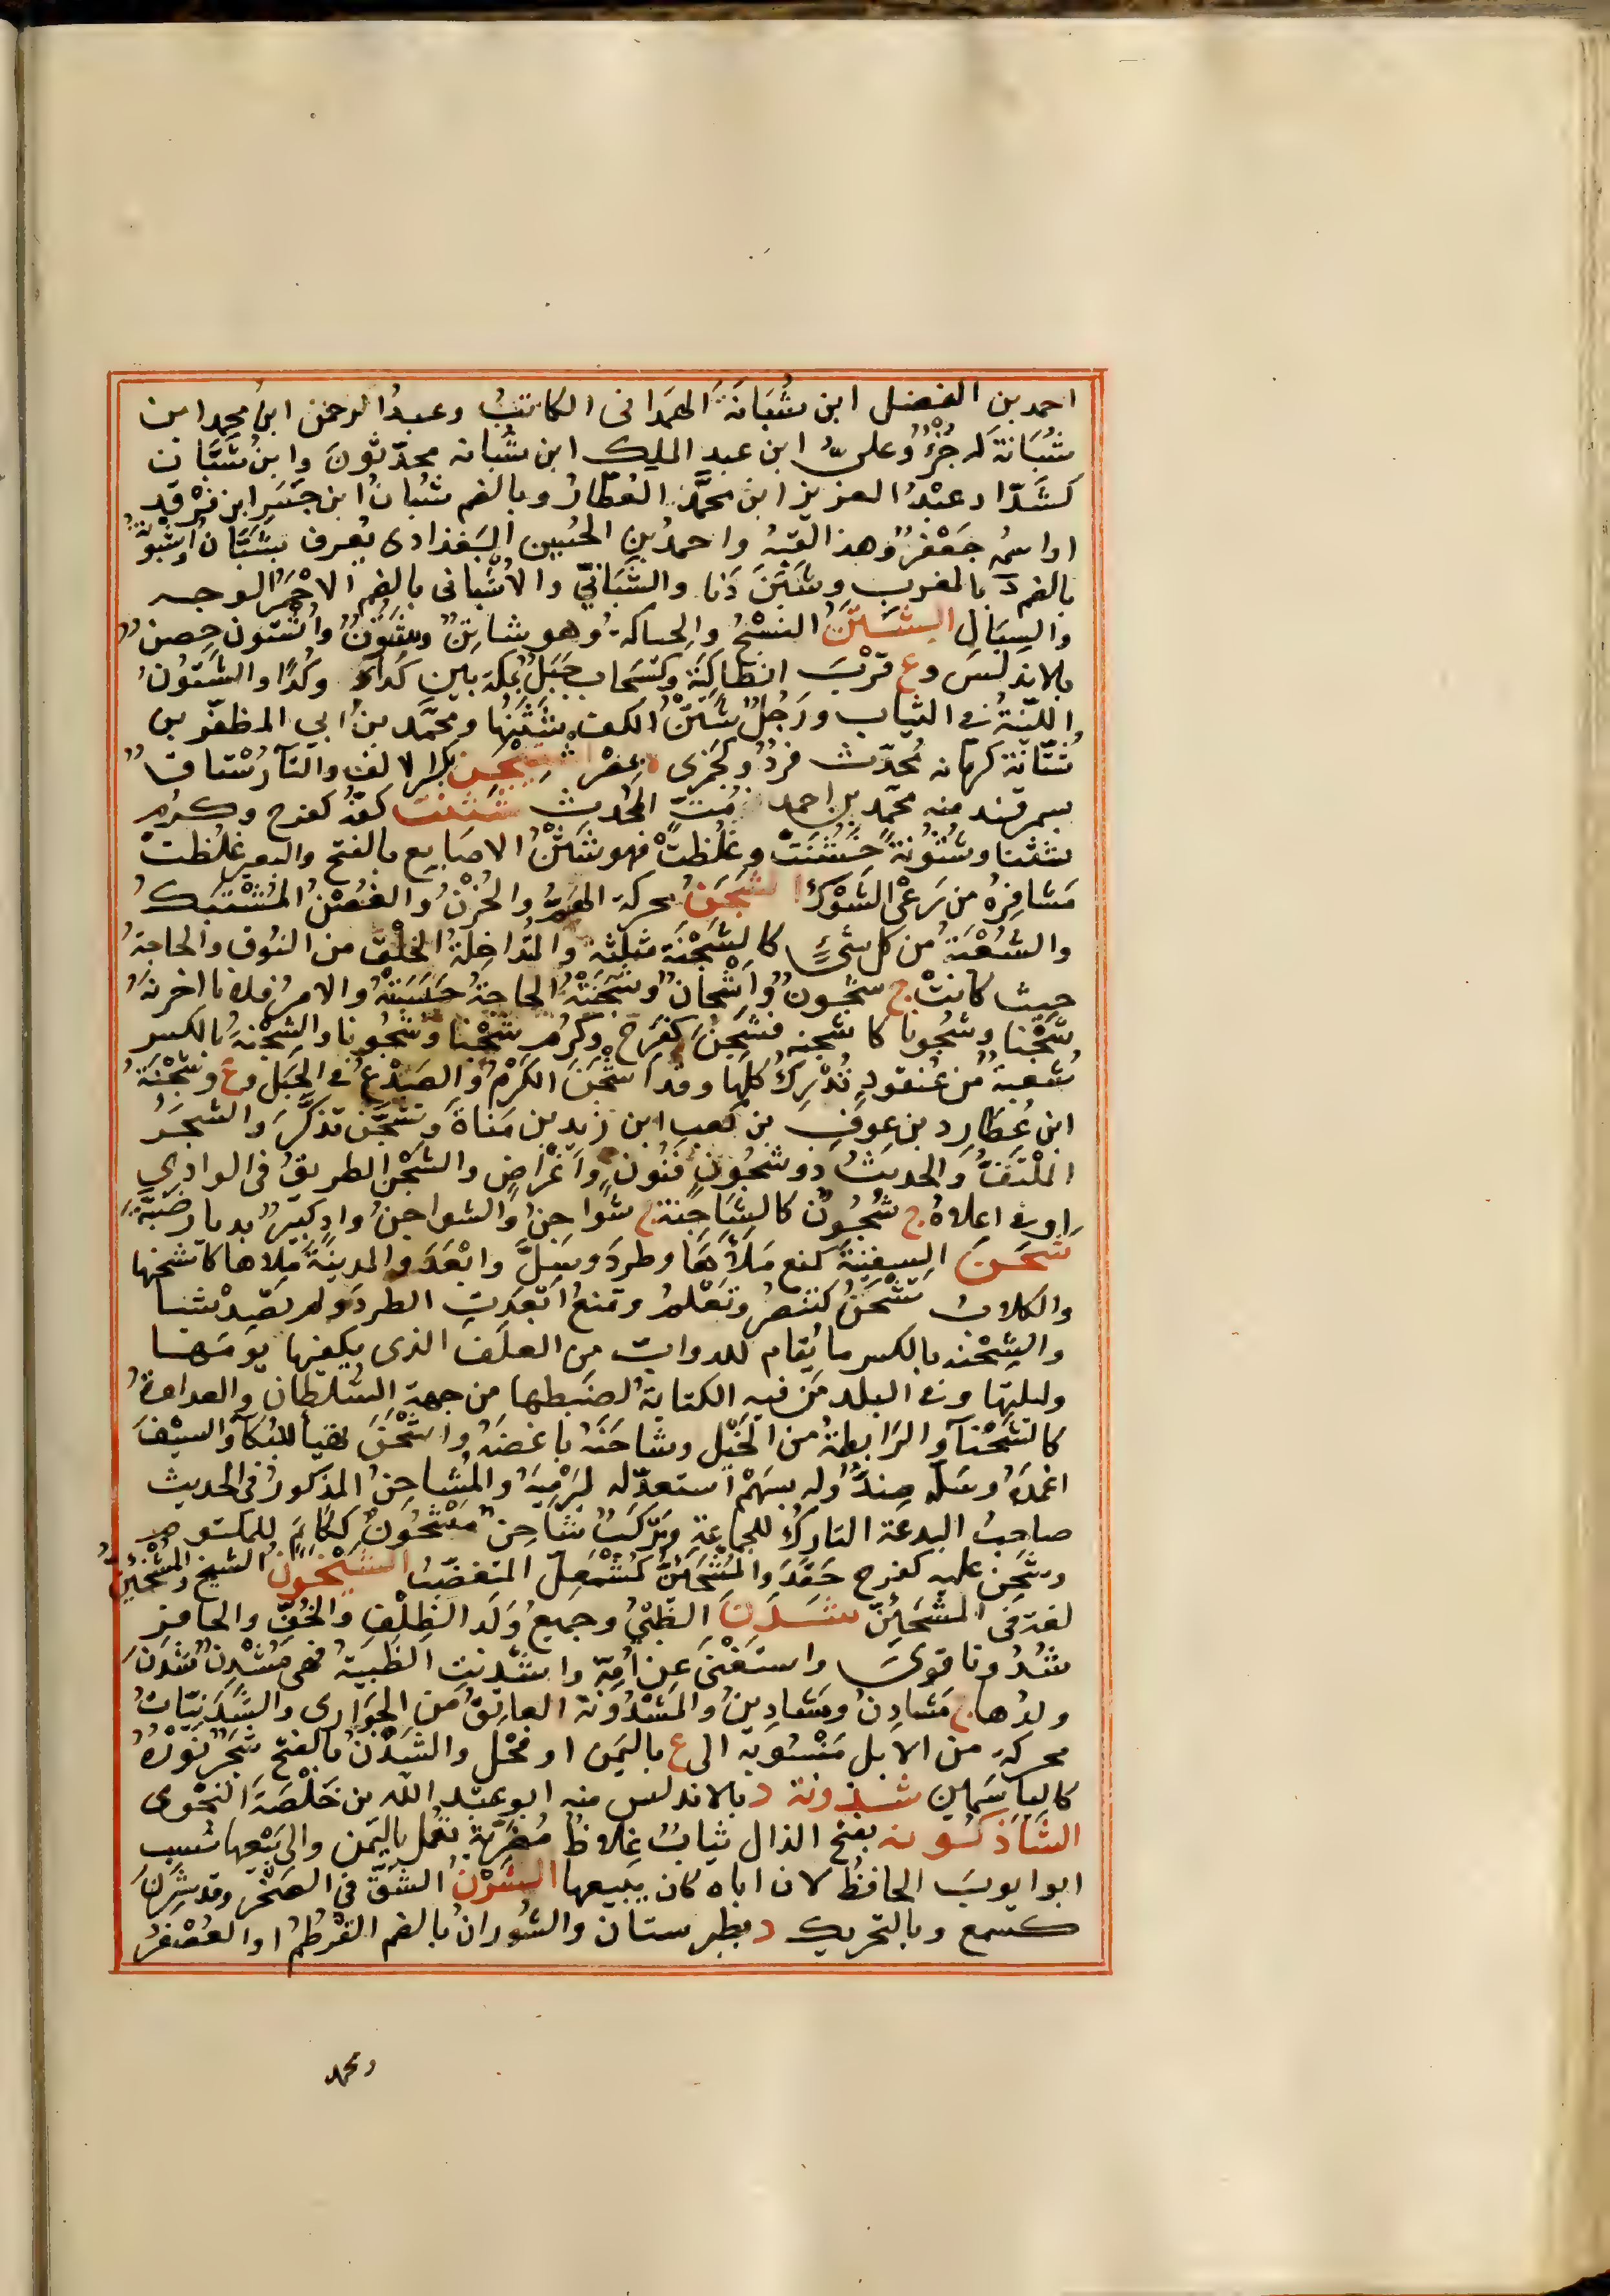 احمد بنِ الفضل ابن شُبَانَةَ الهمَدانى الكاتبُ وعبدُ الرحمن ابنُ محمد ابن
شُبَانَةَ له جُزْءٌ وعلىُّ ابن عبد الملك ابن شُبانه محدّثونَ وابنُ شَبَّان
كشَدّاد عبْدُ العزيز ابن محمَّد العَطّارُ وبالضم شُبانُ ابن جَسَر ابن فرْقد
او اسمُه جعْفرٌ وهذا لقبُه واحمدُ بن الحُسين البَغدادى يُعرف بشَبَّان واُشْبُونَةُ
بالضم د بالمغرب وشَبَنَ دَنا والشَّبَانِيُّ والاُشْبانى بالضم الاحْمَرُ الوجه
والسِبَال الشَتْنُ النسْجُ والحِياكةُ وهو شاتِنٌ وشَتُونٌ واُشْتون حِصنٌ
بالاندلس وع قرْبَ انطاكِيَة وكسَحاب جبَلٌ بمكة بين كَداءَ وكُدًا والشَتُونُ
اللّيّنةُ فى الثياب ورَجُلٌ شَتْنُ الكَف شَثْنُها ومحمَّد بنُ ابي المظفّر بن
شتّانَةَ كرمّانه مُحدّث فردٌ وكجَمزى ة بمصْر اشْتِيْخَن بكسر الالف والتآء رُسْتاقٌ
بسمرقند منه محمّد بن احمد بن مَتّ المحدث شثنت كفّهُ كفرح وكرُم
شثَنا وشُثونةً خَشُنَتْ وغلُظتْ فهو شَثْنُ الاصابع بالفتح والبعيرُ غلُظتْ
مَشافِرُهُ من رَعْى الشَوْك الشجَنُ محركة الهَمُّ والحُزْنُ والغُصْنُ المُشْتبِكُ
والشُعْبَةُ من كل شئٍ كالشُجْنَة مثلّثة والمُتداخِلَةُ الخلْق من النُوق والحاجةُ
حيث كانتْ ج شجُونٌ واَشْجانٌ وشجَنَتْهُ الحاجةُ حَبَسَتْهُ والامرُ فلانا احْزنَهُ
شَجْنا وشُجُونا كاشجنه فشَجِنَ كفَرِحَ وكَرُم شَجَنا وشُجُونا والشِجْنةُ بالكسر
شُعبةٌ من عُنقودٍ تُدْرِكُ كلها وقد اَشْجَنَ الكَرْمُ والصَدْعُ فى الجَبَل وع وشِجْنَةُ
ابن عُطارِد بن عوفِ بن كعب ابن زيد بن مَناةَ وتَشَجَّنَ تَذكَّرَ والشجَرُ
المُلْتَفُّ والحديثُ ذو شجُونٍ فنُونٍ واَغْراضٍ والشَجْنُ الطريقُ فى الوادِي
او فى اعلاهُ ج شُجُونٌ كالشَاجِنَة ج شَوَاجِنُ والشواجنُ وادٍ كبيرٌ بديار ضبَّةَ
شَحَنَ السفينَةَ كمنع مَلَأَها وطردَ وسَلَّ وابْعَدَ والمدينةَ مَلأها كاشحنها
والكلابُ تَشْحَنُ كتنصُر وتعْلم وتمنعُ ابعَدَتِ الطرد ولم تصِدْ شيا
والشِحْنه بالكسر ما يُقام للدوابّ من العلَف الذى يكفيها يومَها
وليلتها وفى البلد مَن فيه الكتايةُ لضَبطها من جهة السُلطان والعداوةُ
كالشَحْنآء والرَابطةُ من الخَيْل وشاحَنَهُ باغضَهُ واشْحَنَ تهَيأ للبُكآء والسيْفَ
اغمدَهُ وسَلّه ضِدٌّ وله بسَهْم استعدّ له ليَرْمِيَهُ والمُشاحِنُ المذكورُ فى الحديث
صاحبُ البدعة التارِكُ للجماعة ومَرْكَبٌ شاحِن مَشْحُونٌ ككاتم للمكتوم
وشحِن عليه كفرح حَقَدَ والمُشحَئِنُّ كمُشْمَعِلّ المتغضّبُ الشَيْخُونُ الشيخ والمُشْخَئِنُّ
لغة فى المشحَئِنّ شَدَنَ الظَبْىُ وجميعُ وَلَد الظِلْفِ والخُفّ والحافر
شُدُونا قوىَ واستَغْنى عن اُمّه واشْدنتِ الظَبيةُ فهى مُشْدِنٌ شدَنَ
ولدُها ج مَشادِنُ ومَشادِينُ والمَشْدُونة العاتِقُ من الجوَارى والشَدَنيَّاتُ
محركه من الابل مَنْسُوبه الى ع باليَمن او فَحْل والشَدْنُ بالفتح شَجَرٌ نَوْرُهُ
كالياسَمين شذونة د بالاندلس منه ابو عَبْد الله بن خَلَصَةَ النحْوى
الشَاذَكُونه بفتح الذال ثيابٌ غِلاظٌ مُضَرَّبةٌ تعْمل باليَمن والى بَيْعها نُسب
ابوا يوبَ الحافظُ لان اباه كان يبيعها الشَرْنُ الشَقُّ فى الصَخْر وقد شَرِنَ
كسمع وبالتحريك د بطبرستان والشُورانُ بالضم القُرطُمُ او العُصْفُرُ
ومحمد